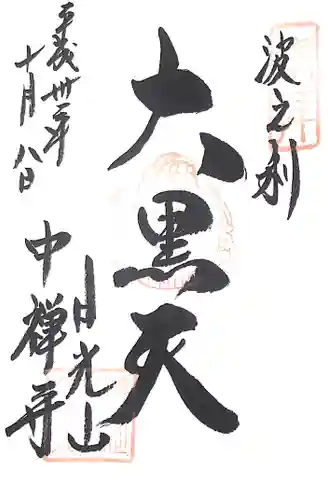 波之利
大黒天
平成卅年
十月八日
日光山
中禅寺